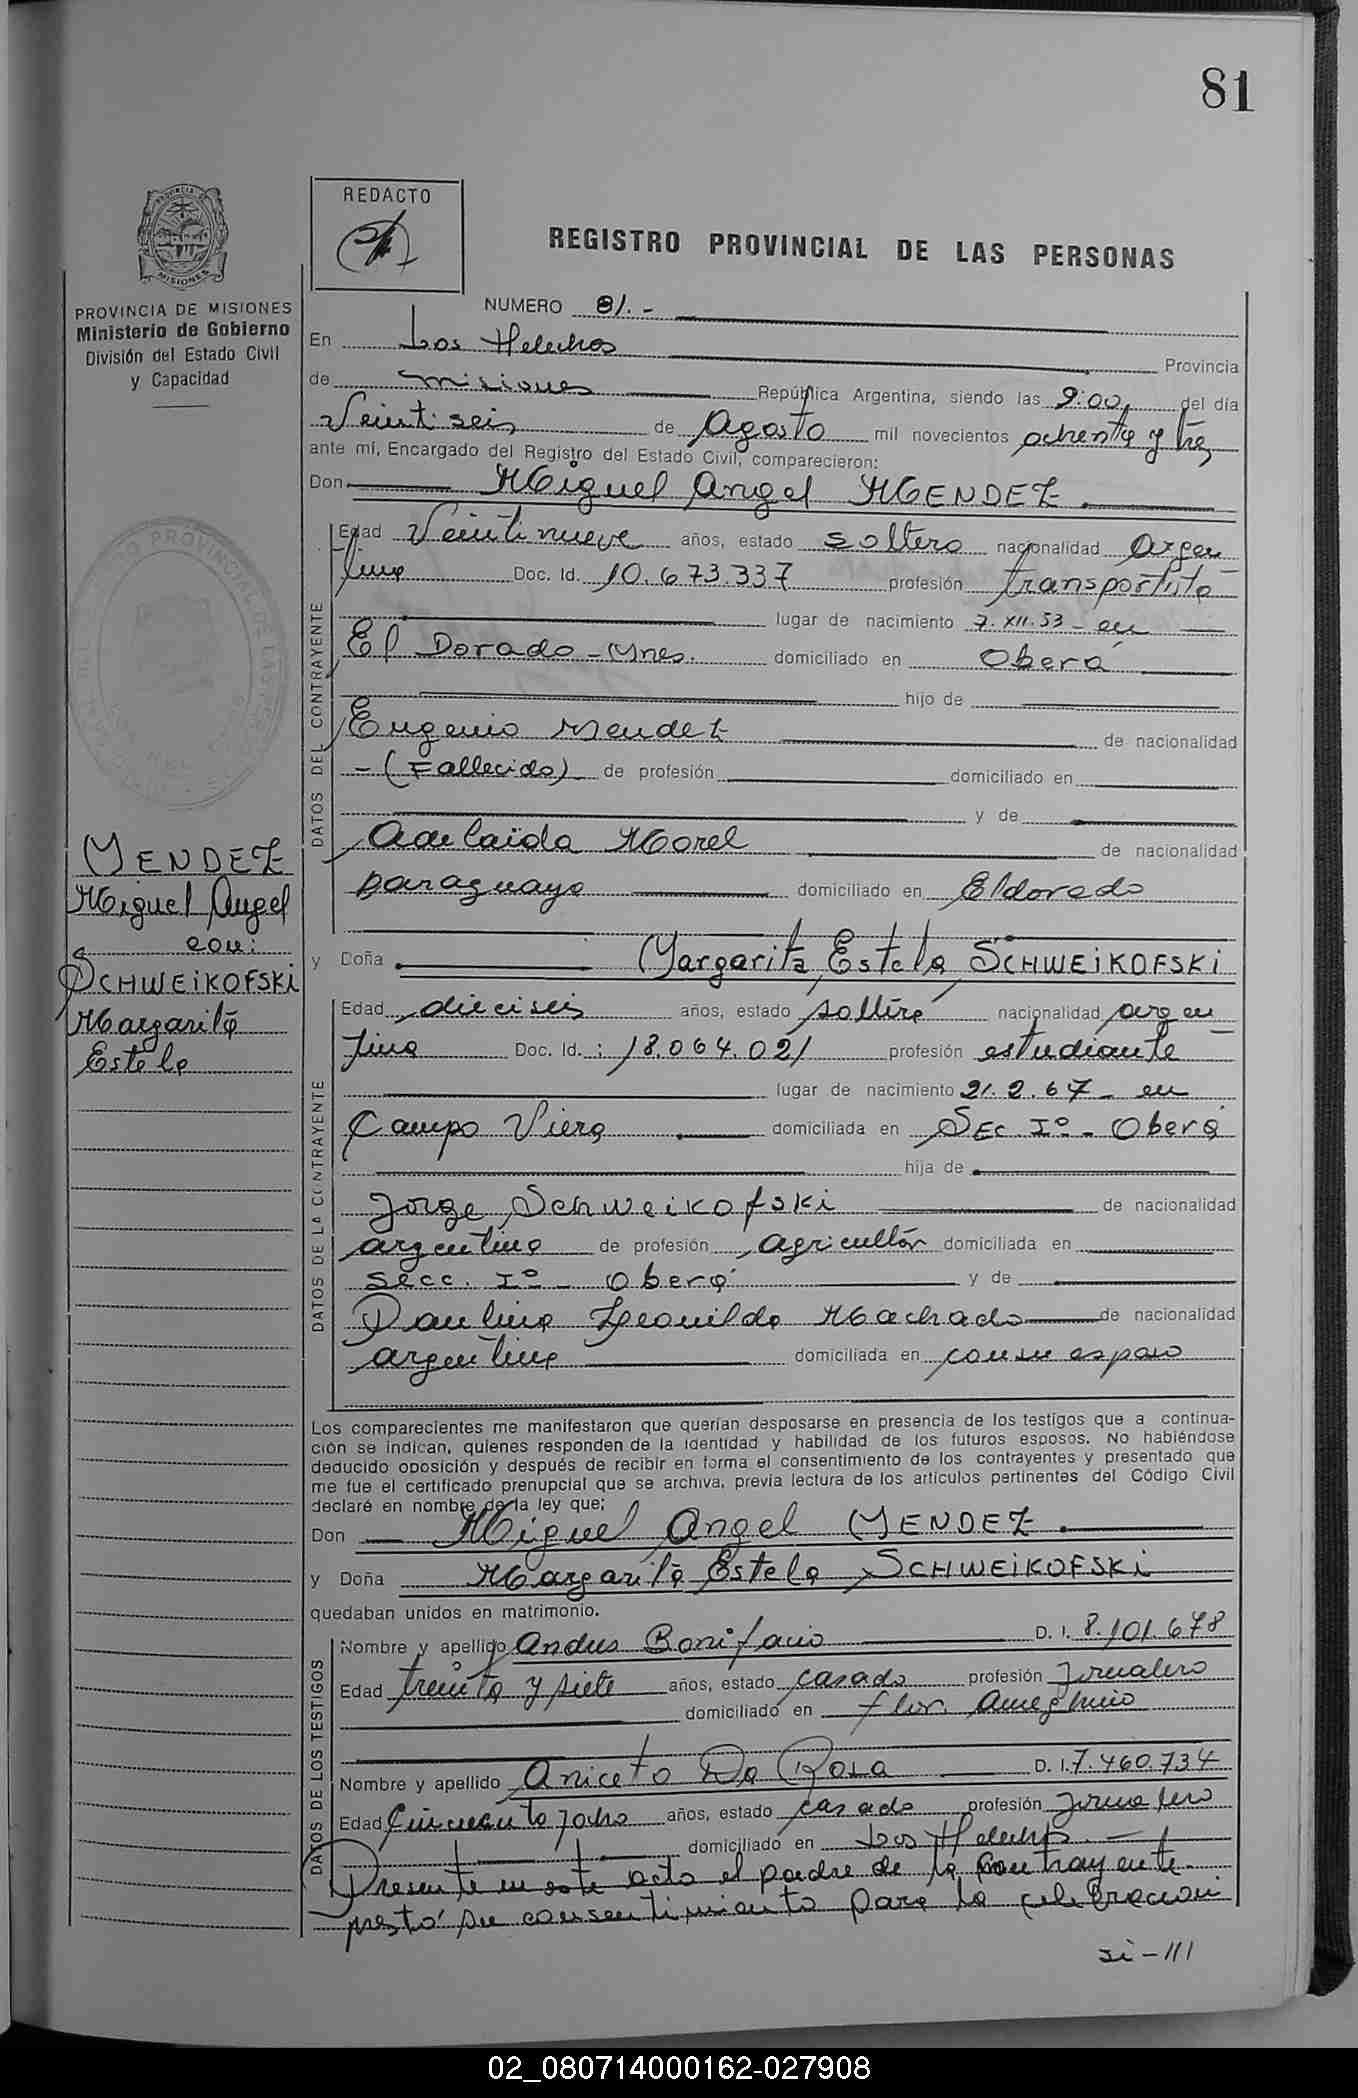 81
REDACTO
REGISTRO PROVINCIAL DE LAS PERSONAS
PROVINCIA DE MISIONES
Ministerio de Gobierno
División del Estado Civil
y Capacidad
NUMERO 81.-
En Los Helechos Provincia
de misiones República Argentina, siendo las 9:00, del día
Veintiseis de Agosto mil novecientos ochenta y tres
ante mí, Encargado del Registro del Estado Civil, comparecieron:
Don Miguel Angel MENDEZ
DATOS DEL CONTRAYENTE
Edad Veintinueve años, estado soltero nacionalidad argen
tino Doc. Id. 10.673.337 profesión transportista
lugar de nacimiento 7.XII.53 - en
El Dorado - Mnes. domiciliado en Oberá
hijo de
Eugenio Mendez de nacionalidad
- (Fallecido) de profesión domiciliado en
y de
Adelaida Morel de nacionalidad
paraguaya domiciliado en Eldorado
MENDEZ
Miguel Angel
con:
SCHWEIKOFSKI
Margarita
Estela
y Doña Margarita Estela SCHWEIKOFSKI
DATOS DE LA CONTRAYENTE
Edad dieciseis años, estado soltera nacionalidad argen
tina Doc. Id. : 18.064.021 profesión estudiante
lugar de nacimiento 21.2.67 - en
Campo Viera domiciliada en Sec. Iº - Oberá
hija de
Jorge Schweikofski de nacionalidad
argentino de profesión agricultor domiciliada en
Secc. Iº - Oberá y de
Paulina Leonilda Machado de nacionalidad
argentina domiciliada en con su esposo
Los comparecientes me manifestaron que querían desposarse en presencia de los testigos que a continua-
ción se indican, quienes responden de la identidad y habilidad de los futuros esposos. No habiéndose
deducido oposición y después de recibir en forma el consentimiento de los contrayentes y presentado que
me fue el certificado prenupcial que se archiva, previa lectura de los artículos pertinentes del Código Civil
declaré en nombre de la ley que;
Don Miguel Angel MENDEZ
y Doña Margarita Estela SCHWEIKOFSKI
quedaban unidos en matrimonio.
DATOS DE LOS TESTIGOS
Nombre y apellido Andres Bonifacio D. I. 8.101.678
Edad treinta y siete años, estado casado profesión jornalero
domiciliado en flor. Ameghino
Nombre y apellido Aniceto Da Rosa D. I. 7.460.734
Edad Cincuenta y ocho años, estado casado profesión jornalero
domiciliado en Los Helechos. -
Presente en este acto el padre de la contrayente
prestó su consentimiento para la celebracion
si-111
02_080714000162-027908